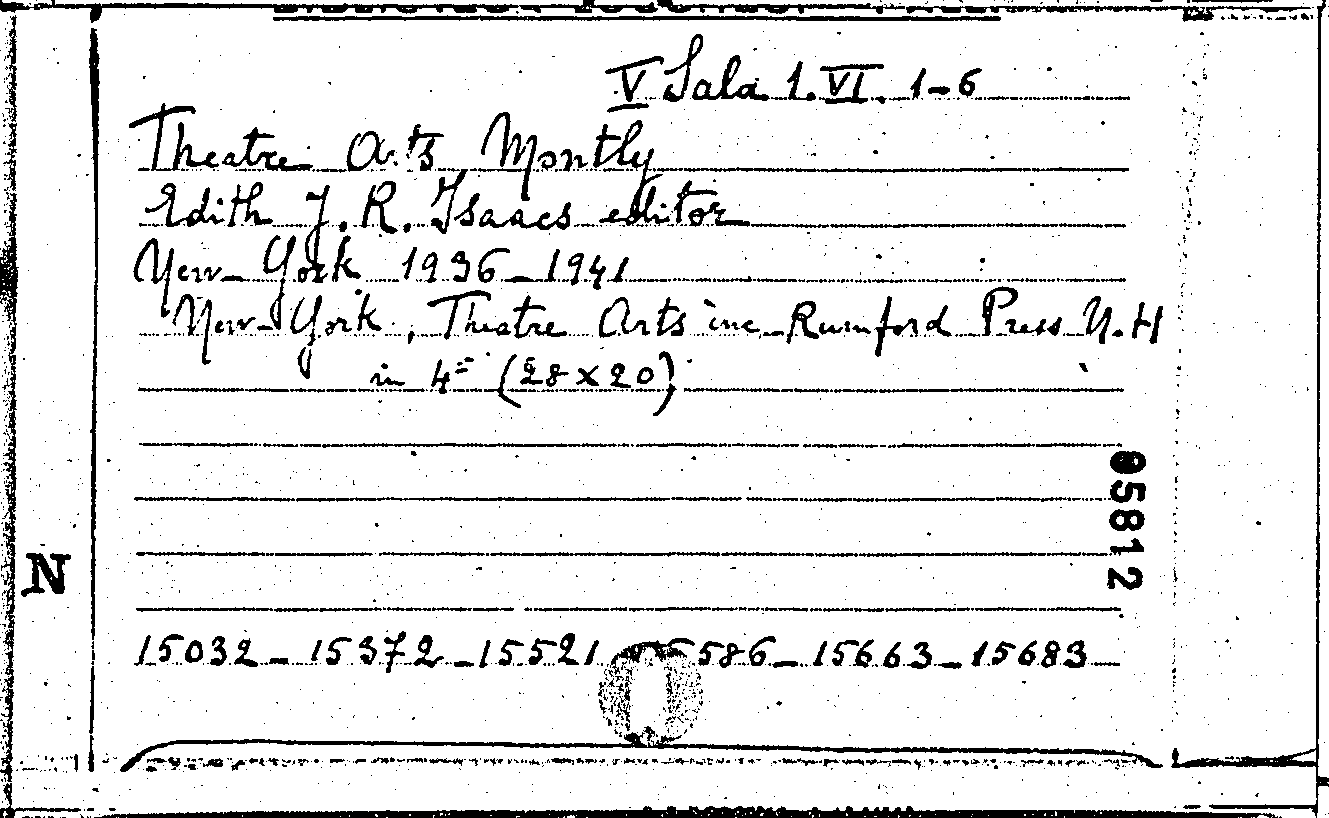 V Sala 1.VI. 1-6
Theatre Arts Montly
Edith J.R. Isaacs editor
New-York 1936-1941
New-York, Theatre Arts inc-Rumford Press N.H
in 4º (28x20)
95812
N
15032-15372-15521 15586-15663-15683